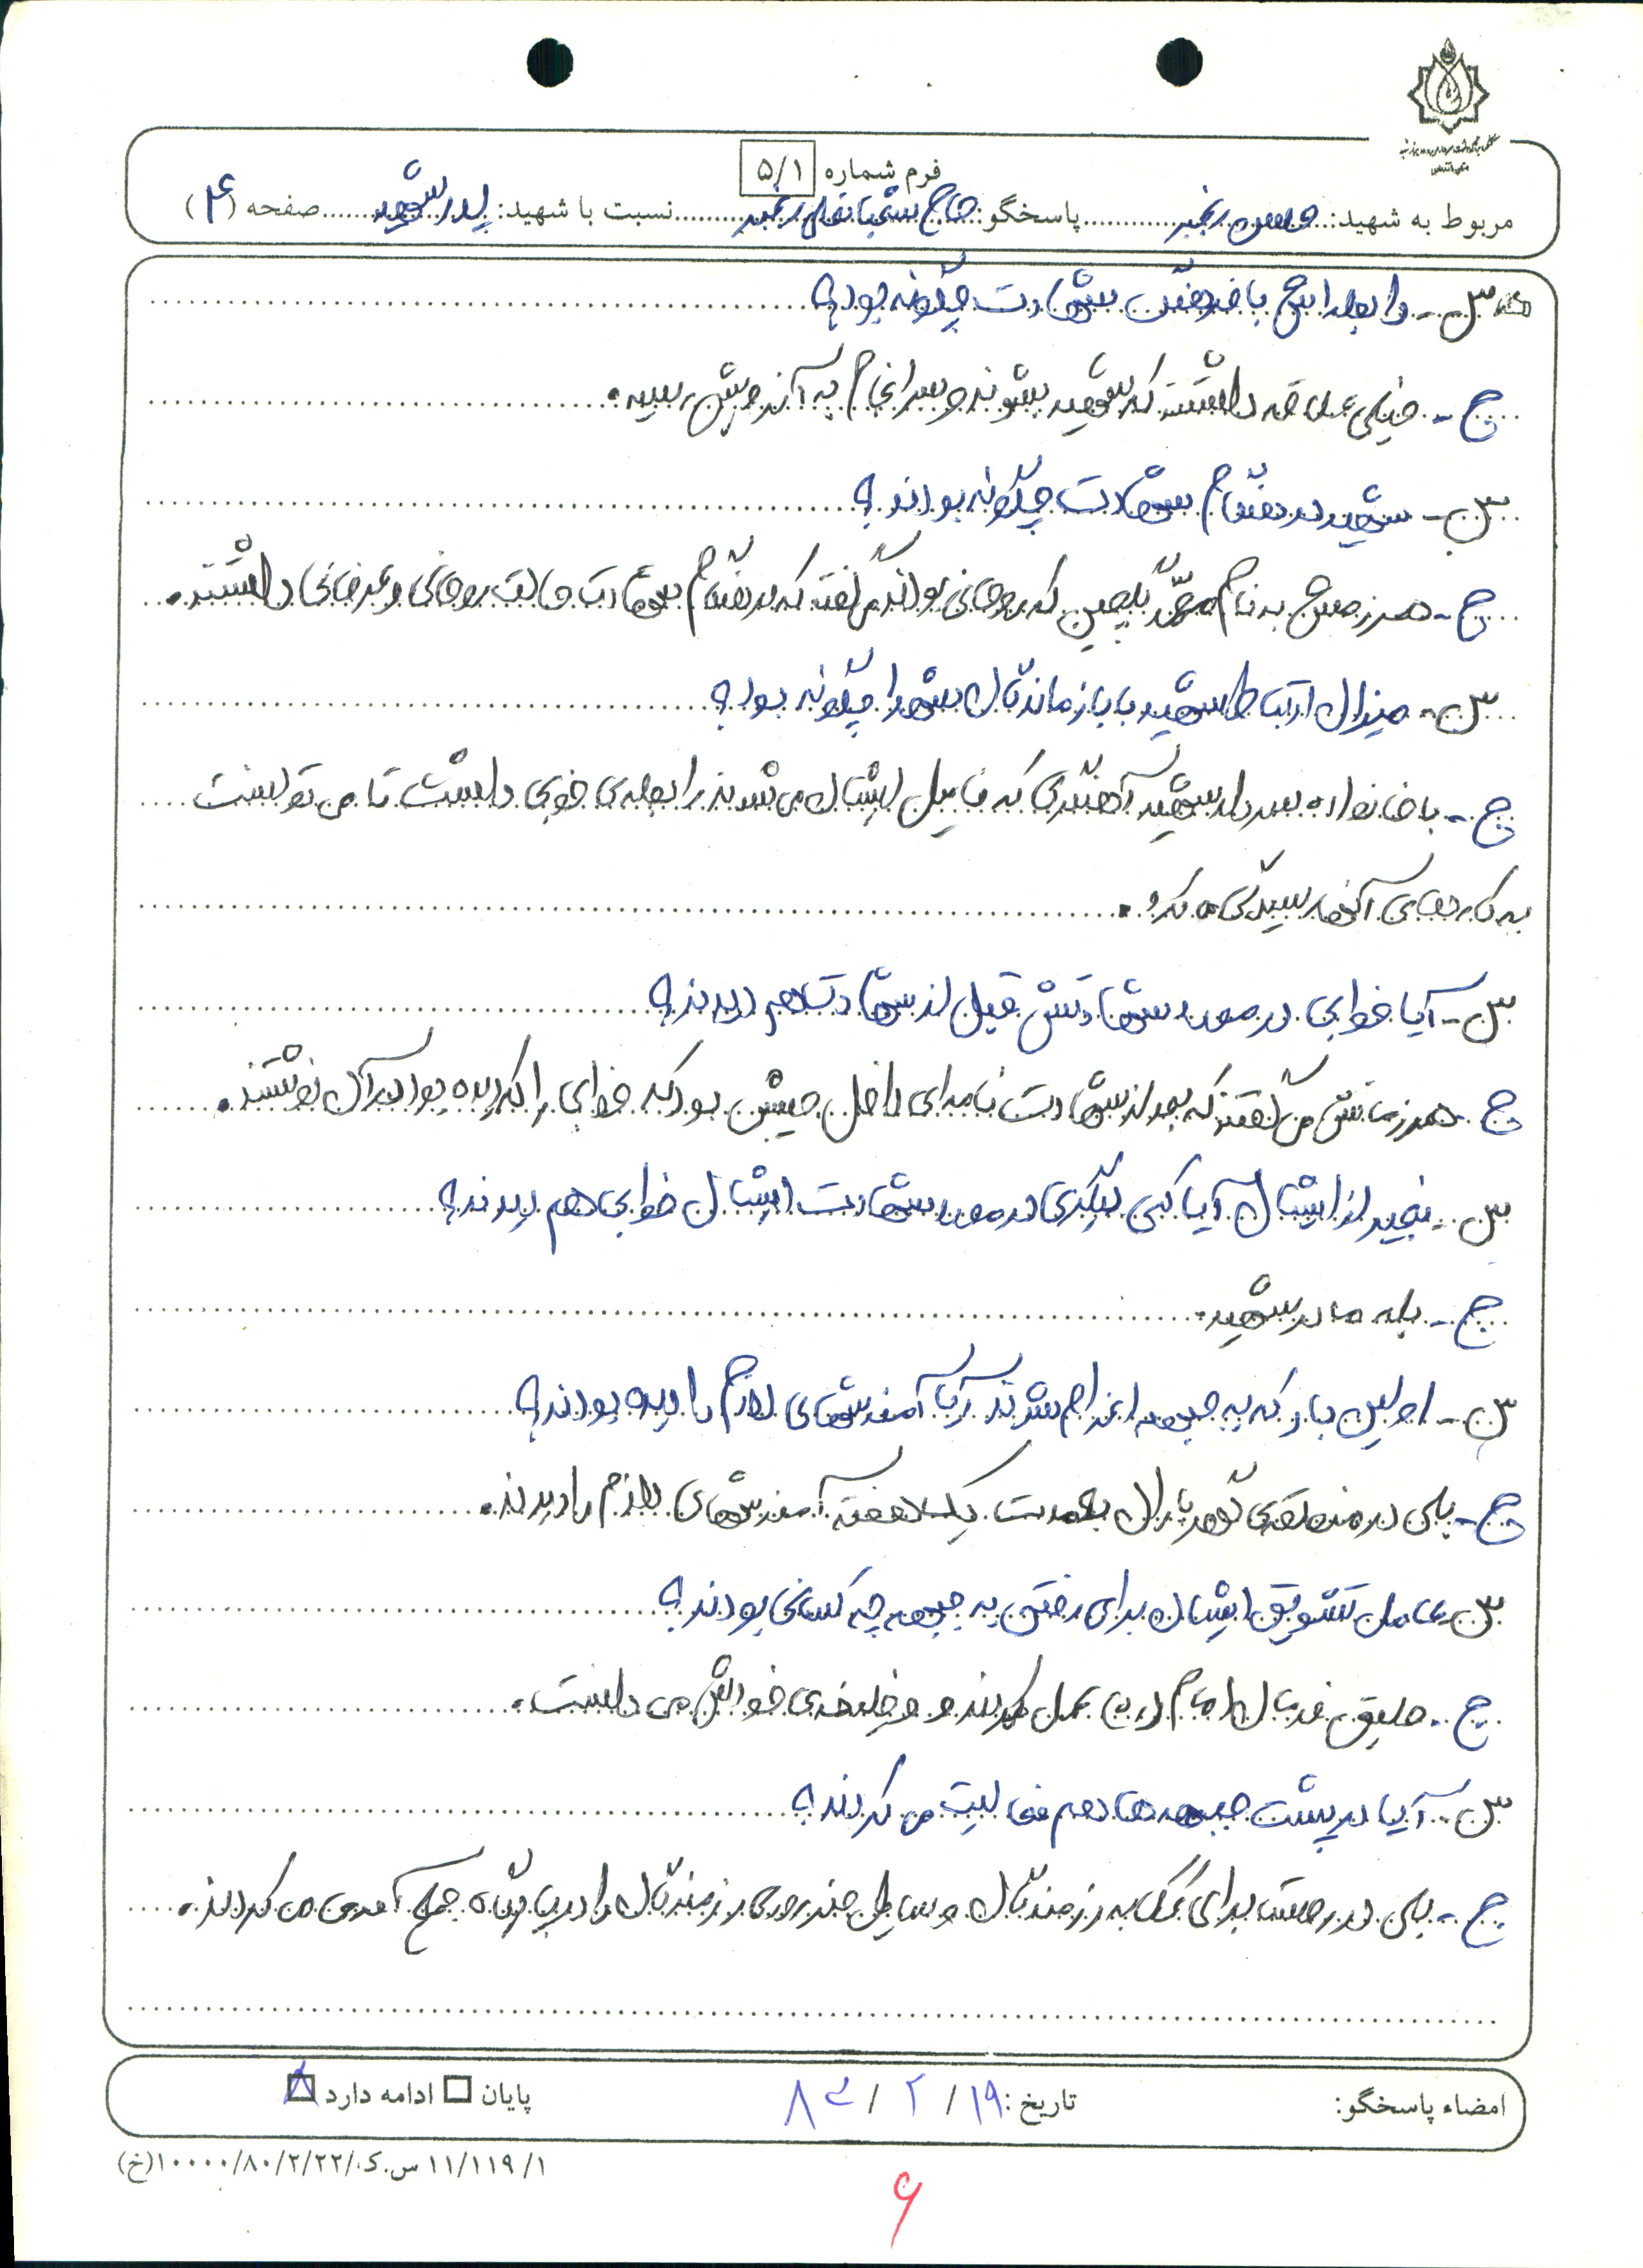 فرم شماره ۵/۱
مربوط به شهید: رنجبر پاسخگو: حاج شعبانعلی رنجبر نسبت با شهید: پدر شهید صفحه (۴)
س - رابطه ایشان با فرهنگ شهادت چگونه بود؟
ج - خیلی علاقه داشتند که شهید بشوند و سرانجام به آرزویش رسید.
س - شهید در هنگام شهادت چگونه بودند؟
ج - همرزمش به نام که روحانی بودند می گفت که در هنگام شهادت حالت روحانی و عرفانی داشتند.
س - میزان ارتباط شهید با بازماندگان شهدا چگونه بود؟
ج - با خانواده سردار شهید آهنگری که فامیل ایشان می شدند رابطه ی خوبی داشت تا می توانست
به کارهای آنها رسیدگی می کرد.
س - آیا خوابی در مورد شهادتش قبل از شهادت هم دیدند؟
ج - همرزمانش می گفتند که بعد از شهادت نامه ای داخل جیبش بود که خوابی را که دیده بود در آن نوشتند.
س - بغیر از ایشان آیا کس دیگری در مورد شهادت ایشان خوابی هم دیدند؟
ج - بله مادر شهید.
س - اولین بار که به جبهه اعزام شدند آیا آموزشهای لازم را دیده بودند؟
ج - بلی در منطقه ی گهرباران به مدت یک هفته آموزشهای لازم را دیدند.
س - عامل تشویق ایشان برای رفتن به جبهه چه کسانی بودند؟
ج - طبق فرمان امام عمل کردند و وظیفه ی خودش می دانست.
س - آیا در پشت جبهه ها هم فعالیت می کردند؟
ج - بلی در جهت برای کمک به رزمندگان وسایل ضروری رزمندگان را در پایگاه جمع آوری می کردند.
امضاء پاسخگو: تاریخ: ۱۹ / ۲ / ۸۳ پایان ادامه دارد
۱۱/۱۱۹/۱ س.ک/۱۰۰۰۰/۸۰/۲/۲۲(خ)
۶